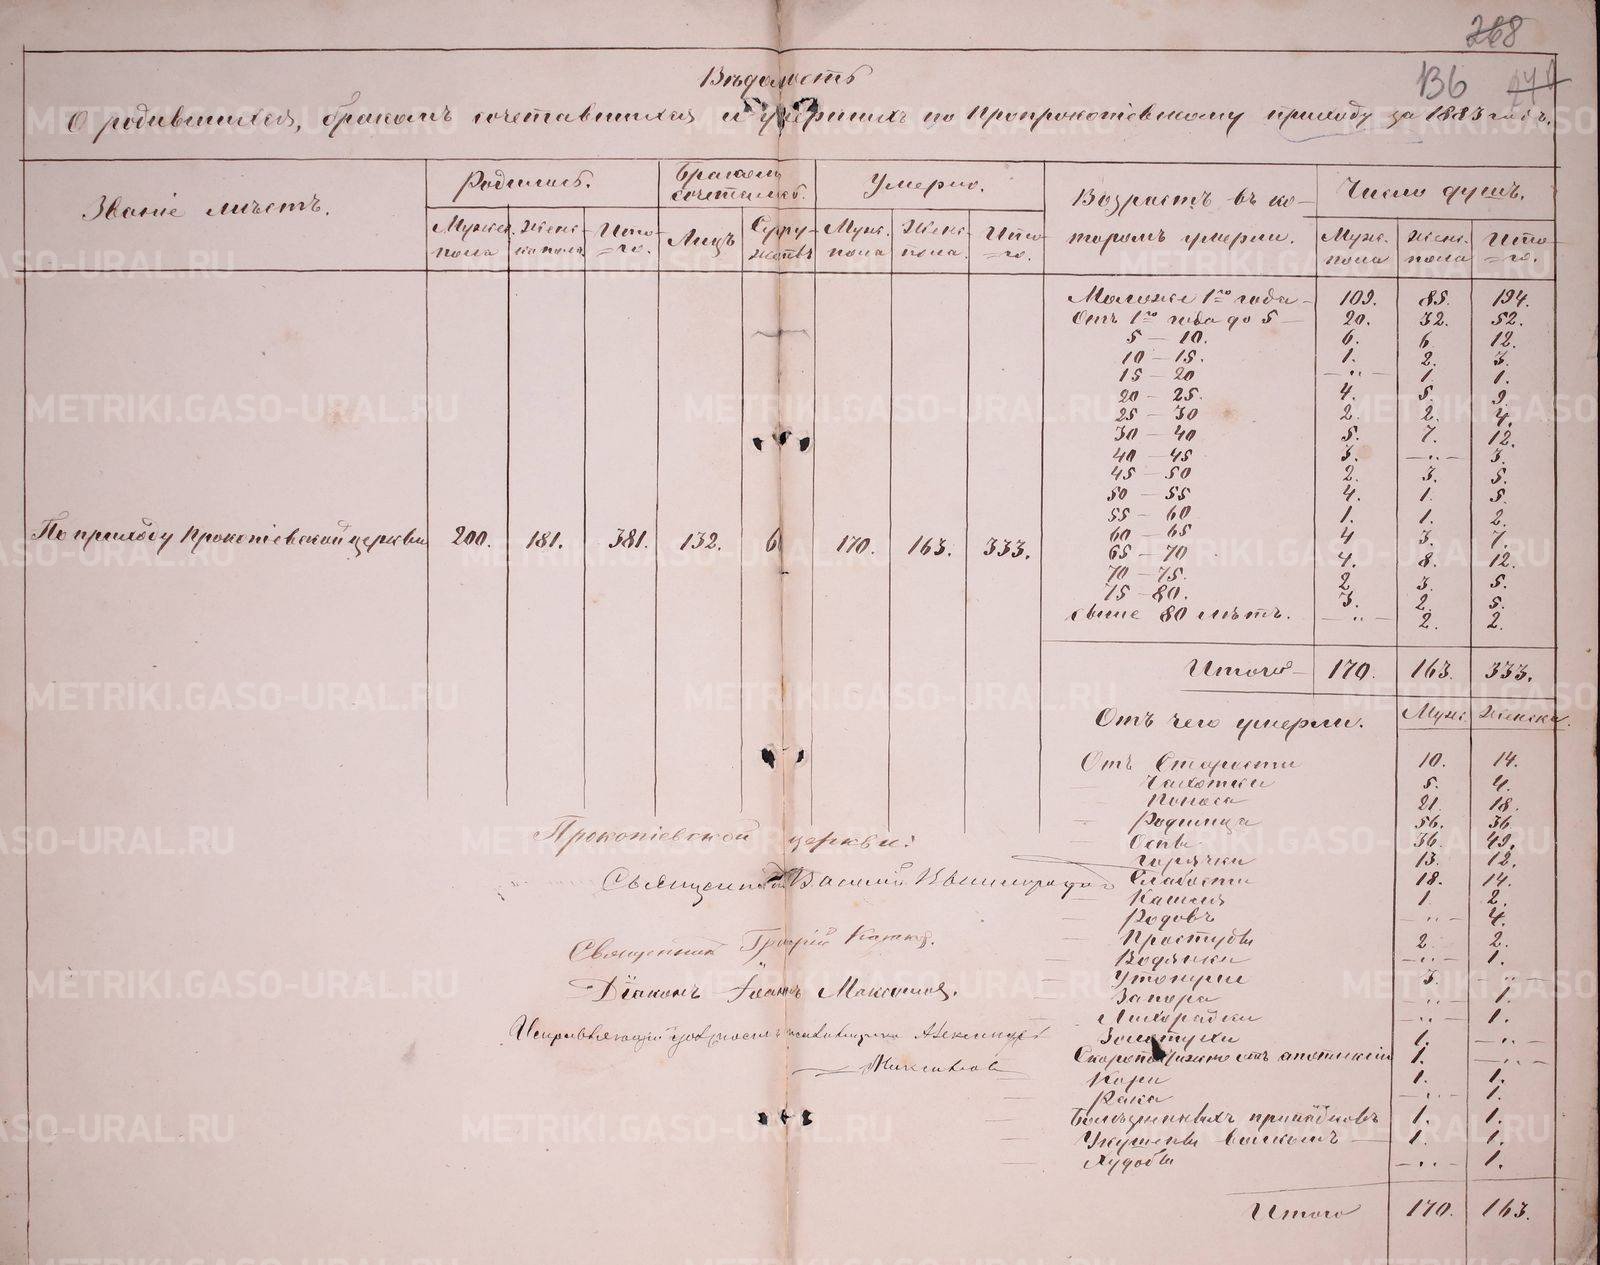 268
136
Вѣдомость
О родившихся, бракомъ сочетавшихся и умершихъ по Пропрокотевскому приходу за 1883 годъ.
Званіе мѣстъ. Родились. Бракомъ сочетались. Умерло. Возрастъ въ ко- Число душъ.
Мужск. пола Женс- ка пола Ито- =го. Лицъ Супру- жествъ Мужс. пола Женс. пола. Ито- =го. торомъ умерли. Мужс. пола Женс. пола Ито- =го.
Моложе 1го года — 109. 85. 194.
Отъ 1го года до 5 — 20. 32. 52.
5 — 10. 6. 6 12.
10 — 15. 1. 2. 3.
15 — 20 — „ — 1. 1.
20 — 25. 4. 5. 9.
25 — 30 2. 2. 4.
30 — 40 5. 7. 12.
40 — 45 3. — „ — 3.
45 — 50 2. 3. 5.
50 — 55 4. 1. 5.
55 — 60 1. 1. 2.
По приходу Прокопіевской церкви 200. 181. 381. 132. 6 170. 163. 333.
60 — 65 4 3. 7.
65 — 70 4. 8. 12.
70 — 75. 2 3. 5.
75 — 80. 3. 2. 5.
свыше 80 лѣтъ. — „ — 2. 2.
Итого — 170. 163. 333.
Отъ чего умерли. Мужс. Женски.
Отъ Старости 10. 14.
Чахотки 5. 4.
Поноса 21. 18.
Родимца 56. 36.
Оспы 36. 49.
Горячки 13. 12.
Слабости 18. 14.
Кашля 1. 2.
Родовъ — „ — 4.
Простуды 2. 2.
Водянки — „ — 1.
Утопшіе 3. — „ —
Запора — „ — 1.
Лихорадки — „ — 1.
Золотухи 1. — „ —
Скоропостижно отъ апоплексіи 1. — „ —
Кори 1. 1.
Рака — „ — 1.
Болѣзненныхъ припадковъ 1. 1.
Укушены волкомъ 1. 1.
Худобы — „ — 1.
Итого 170. 163.
Прокопіевской церкви:
Священникъ Василій
Священникъ
Діаконъ Іоаннъ Максимов.
Исправляющій должность псаломщика Александръ
METRIKI.GASO-URAL.RU